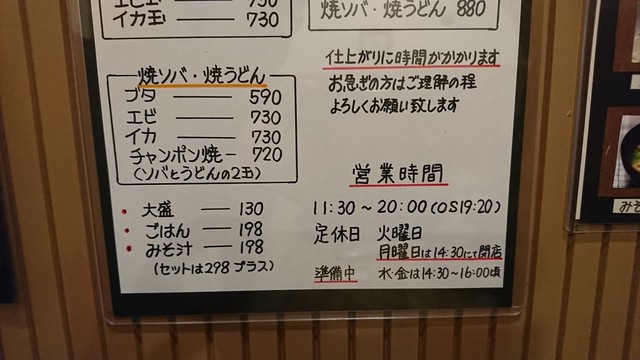 エビ玉 730
イカ玉 730
焼ソバ・焼うどん
ブタ 590
エビ 730
イカ 730
チャンポン焼 720
(ソバとうどんの2玉)
・大盛 130
・ごはん 198
・みそ汁 198
(セットは298プラス)
焼ソバ・焼うどん 880
仕上がりに時間がかかります
お急ぎの方はご理解の程
よろしくお願い致します
営業時間
11:30〜20:00(OS19:20)
定休日 火曜日
月曜日は14:30にて閉店
準備中 水・金は14:30〜16:00頃
みそ